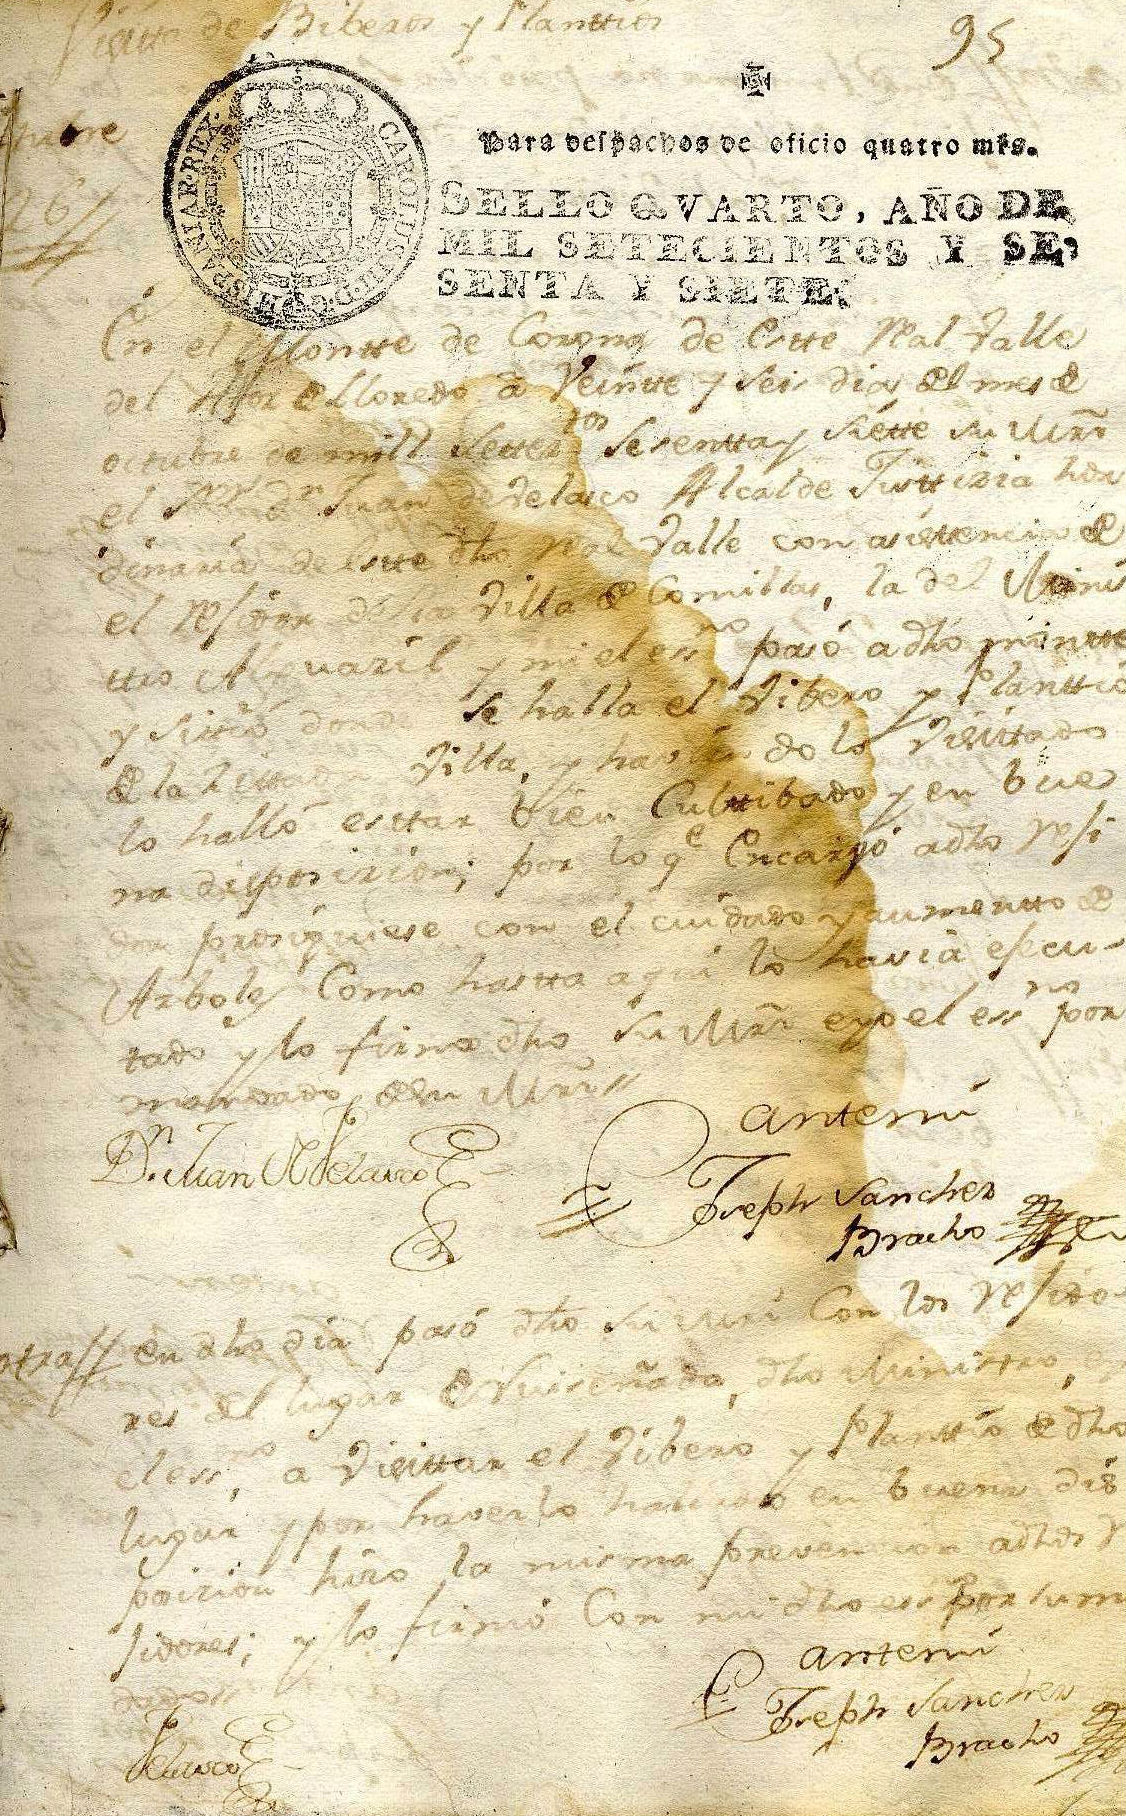 Visitta de Biberos y Planttios
95
Para despachos de oficio quatro mrs.
SELLO QVARTO, AÑO DE
MIL SETECIENTOS Y SE-
SENTA Y SIETE.
CAROLUS III D. G. HISPANIAR. REX.
En el Montte de Corona de Estte Real Valle
del Alfoz de Lloredo a Veintte y seis dias del mes de
octubre de mill settez.tos Sesentta y siette su Mrd
el Sr Dn Juan de Velasco Alcalde Justtizia hor
dinaria de Estte dho Real Valle con asisttencia de
el Residor de la Villa de Comillas, la del Minis
ttro Alguazil y mi el essno pasó a dho montte
y sittio donde se halla el Vibero y Planttio
de la zittada Villa, y haviendo lo Visittado
lo halló esttar bien Culttibado y en bue
na disposizion; por lo qe Encargó a dho Resi
dor prosiguiese con el cuidado y aumentto de
Arboles Como hastta aqui lo havia efecu-
tado y lo firmo dho su Mrd e yo el essno por
mandado de su Mrd
Dn Juan de Velasco
Antemi
Joseph Sanchez
Bracho
otra
En dho dia pasó dho su Mrd Con los Resido-
res del lugar de Ruiseñada, dho Ministro, y
el essno, a Visittar el Vibero y Planttio de dho
lugar y por haverlo hallado en buena dis
posizion hizo la misma prevencion a dhos Re
sidores; y lo firmó Con mi dho essno Por su man
dado
Antemi
Joseph Sanchez
Bracho
Velasco